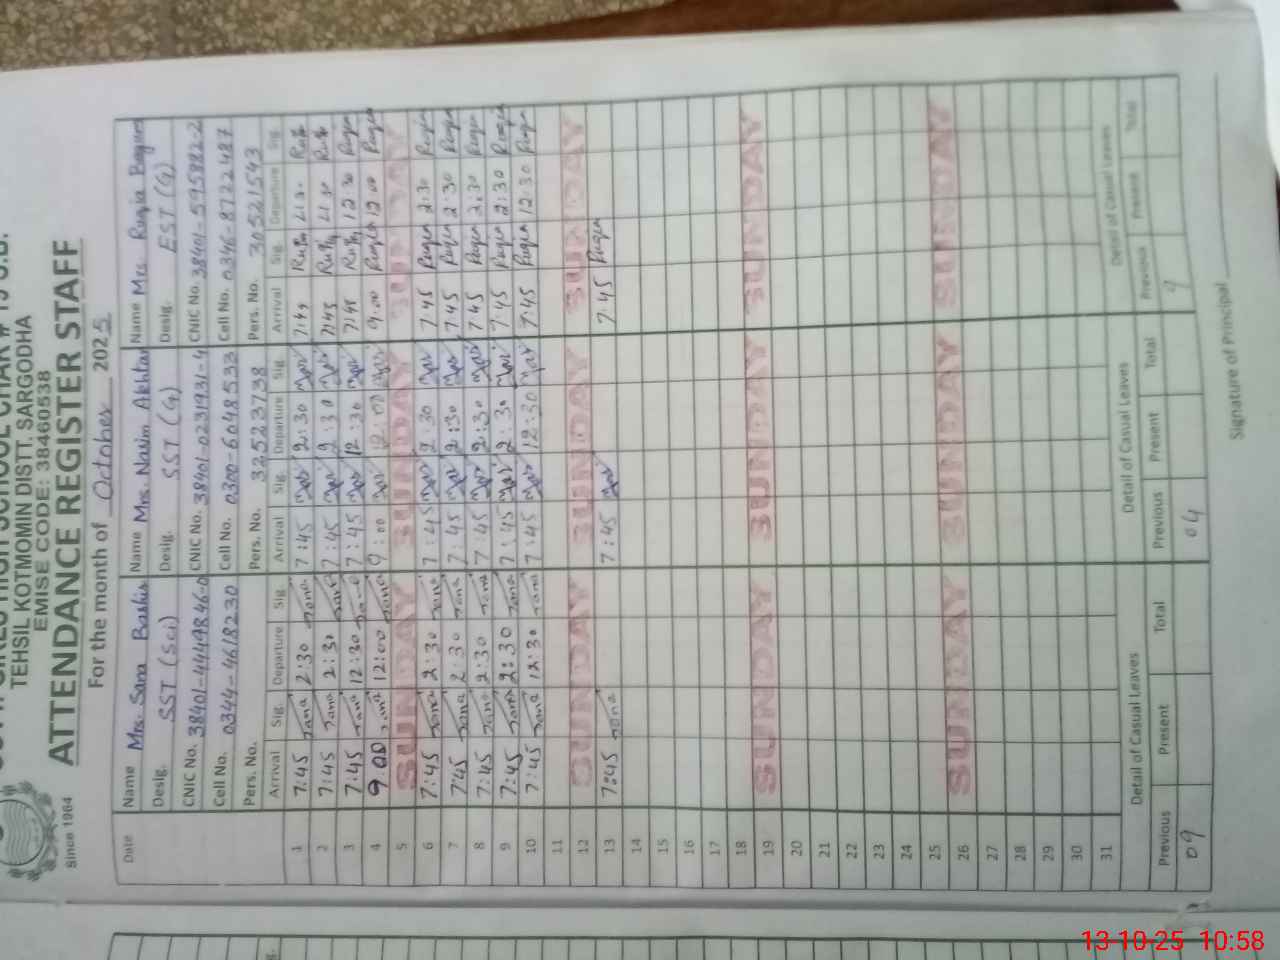 TEHSIL KOTMOMIN DISTT. SARGODHA
EMISE CODE: 38460538
ATTENDANCE REGISTER STAFF
Since 1964
For the month of October 2025
Date
Name Mrs. Sana Bashir Name Mrs. Nasim Akhtar Name Mrs Ruqia Begum
Desig. SST (Sci) Desig. SST (G) Desig. EST (G)
CNIC No. 38401-4449846-0 CNIC No. 38401-0231931-4 CNIC No. 38401-595882-2
Cell No. 0344-4618230 Cell No. 0300-6048533 Cell No. 0346-8722487
Pers. No. Pers. No. 32523738 Pers. No. 30521543
Arrival Sig. Departure Sig. Arrival Sig. Departure Sig. Arrival Sig. Departure Sig.
1 7:45 Sana 2:30 Sana 7:45 2:30 7:45
2 7:45 Sana 2:30 Sana 7:45 2:30 7:45
3 7:45 Sana 12:30 Sana 7:45 12:30 7:45 12 30 Ruqia
4 9:00 Sana 12:00 Sana 9:00 12:00 9:00 Ruqia 12 00 Ruqia
5 SUNDAY SUNDAY SUNDAY
6 7:45 Sana 2:30 Sana 7:45 2:30 7:45 Ruqia 2:30 Ruqia
7 7:45 Sana 2:30 Sana 7:45 2:30 7:45 Ruqia 2:30 Ruqia
8 7:45 Sana 2:30 Sana 7:45 2:30 7 45 Ruqia 2:30 Ruqia
9 7:45 Sana 2:30 Sana 7:45 2:30 7:45 Ruqia 2:30 Ruqia
10 7:45 Sana 12:30 Sana 7:45 12:30 7:45 Ruqia 12:30 Ruqia
11
12 SUNDAY SUNDAY SUNDAY
13 7:45 Sana 7:45 7:45 Ruqia
14
15
16
17
18
19 SUNDAY SUNDAY SUNDAY
20
21
22
23
24
25
26 SUNDAY SUNDAY SUNDAY
27
28
29
30
31
Detail of Casual Leaves Detail of Casual Leaves Detail of Casual Leaves
Previous Present Total Previous Present Total Previous Present Total
09 04 9
Signature of Principal
13-10-25 10:58